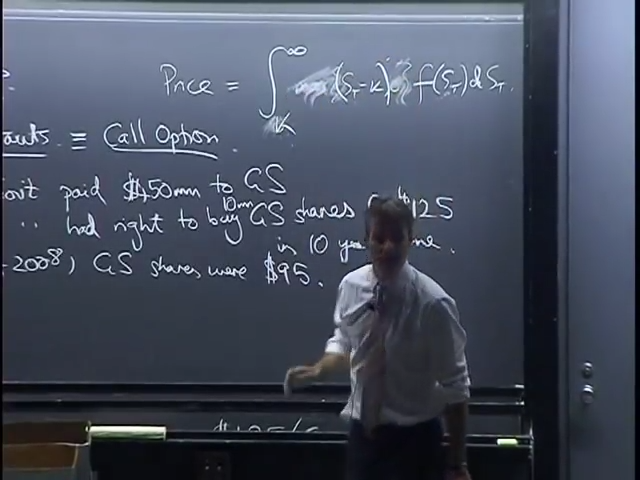 Price = ∫_K^∞ (S_T-K) f(S_T) dS_T.
≡ Call Option.
paid $450mm to GS
" " had right to buy 10mm GS shares $125
in 10
2008) GS shares were $95.